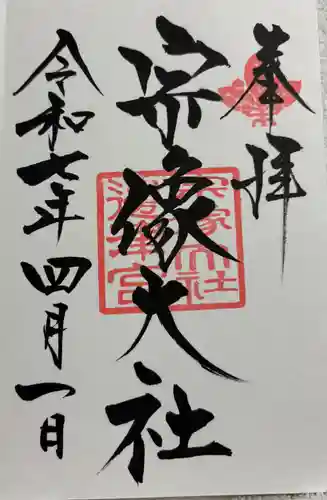 奉拝
宗像大社
令和七年四月一日
宗像大社
邊津宮